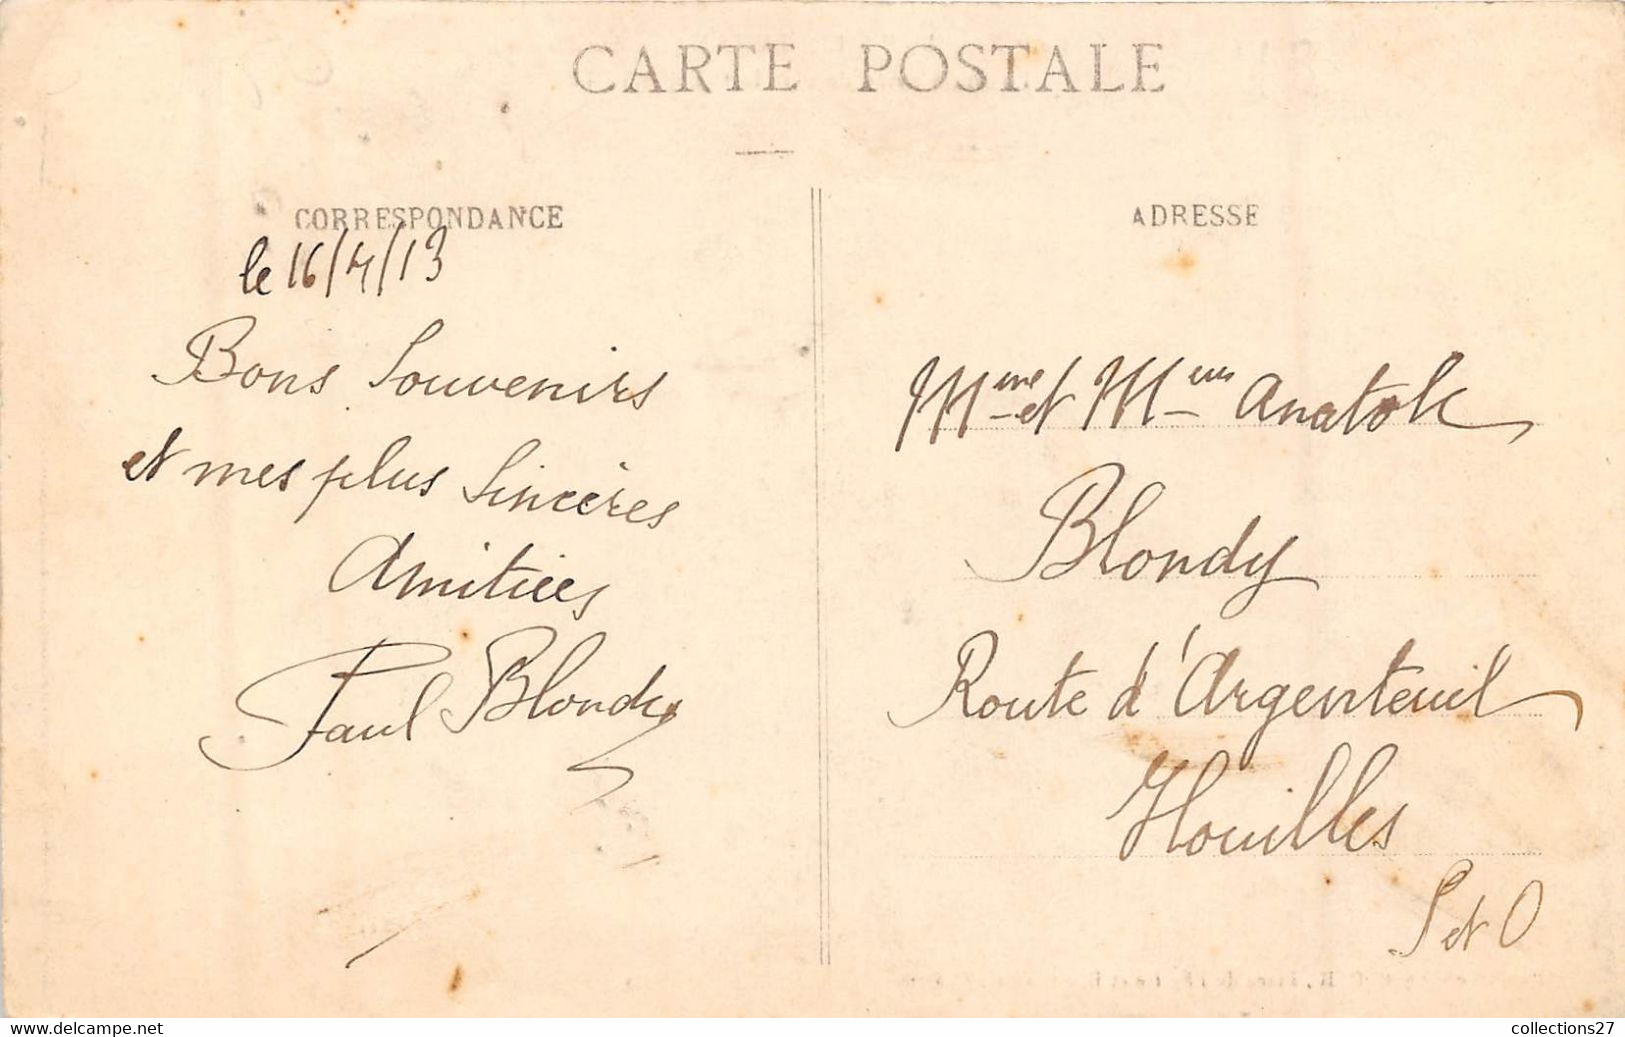 CARTE POSTALE
CORRESPONDANCE
le 16/4/13
Bons Souvenirs
et mes plus Sincères
Amitiées
Paul Blondy
ADRESSE
Mme et Mr Anatole
Blondy
Route d'Argenteuil
Houilles
S et O
www.delcampe.net
collections27